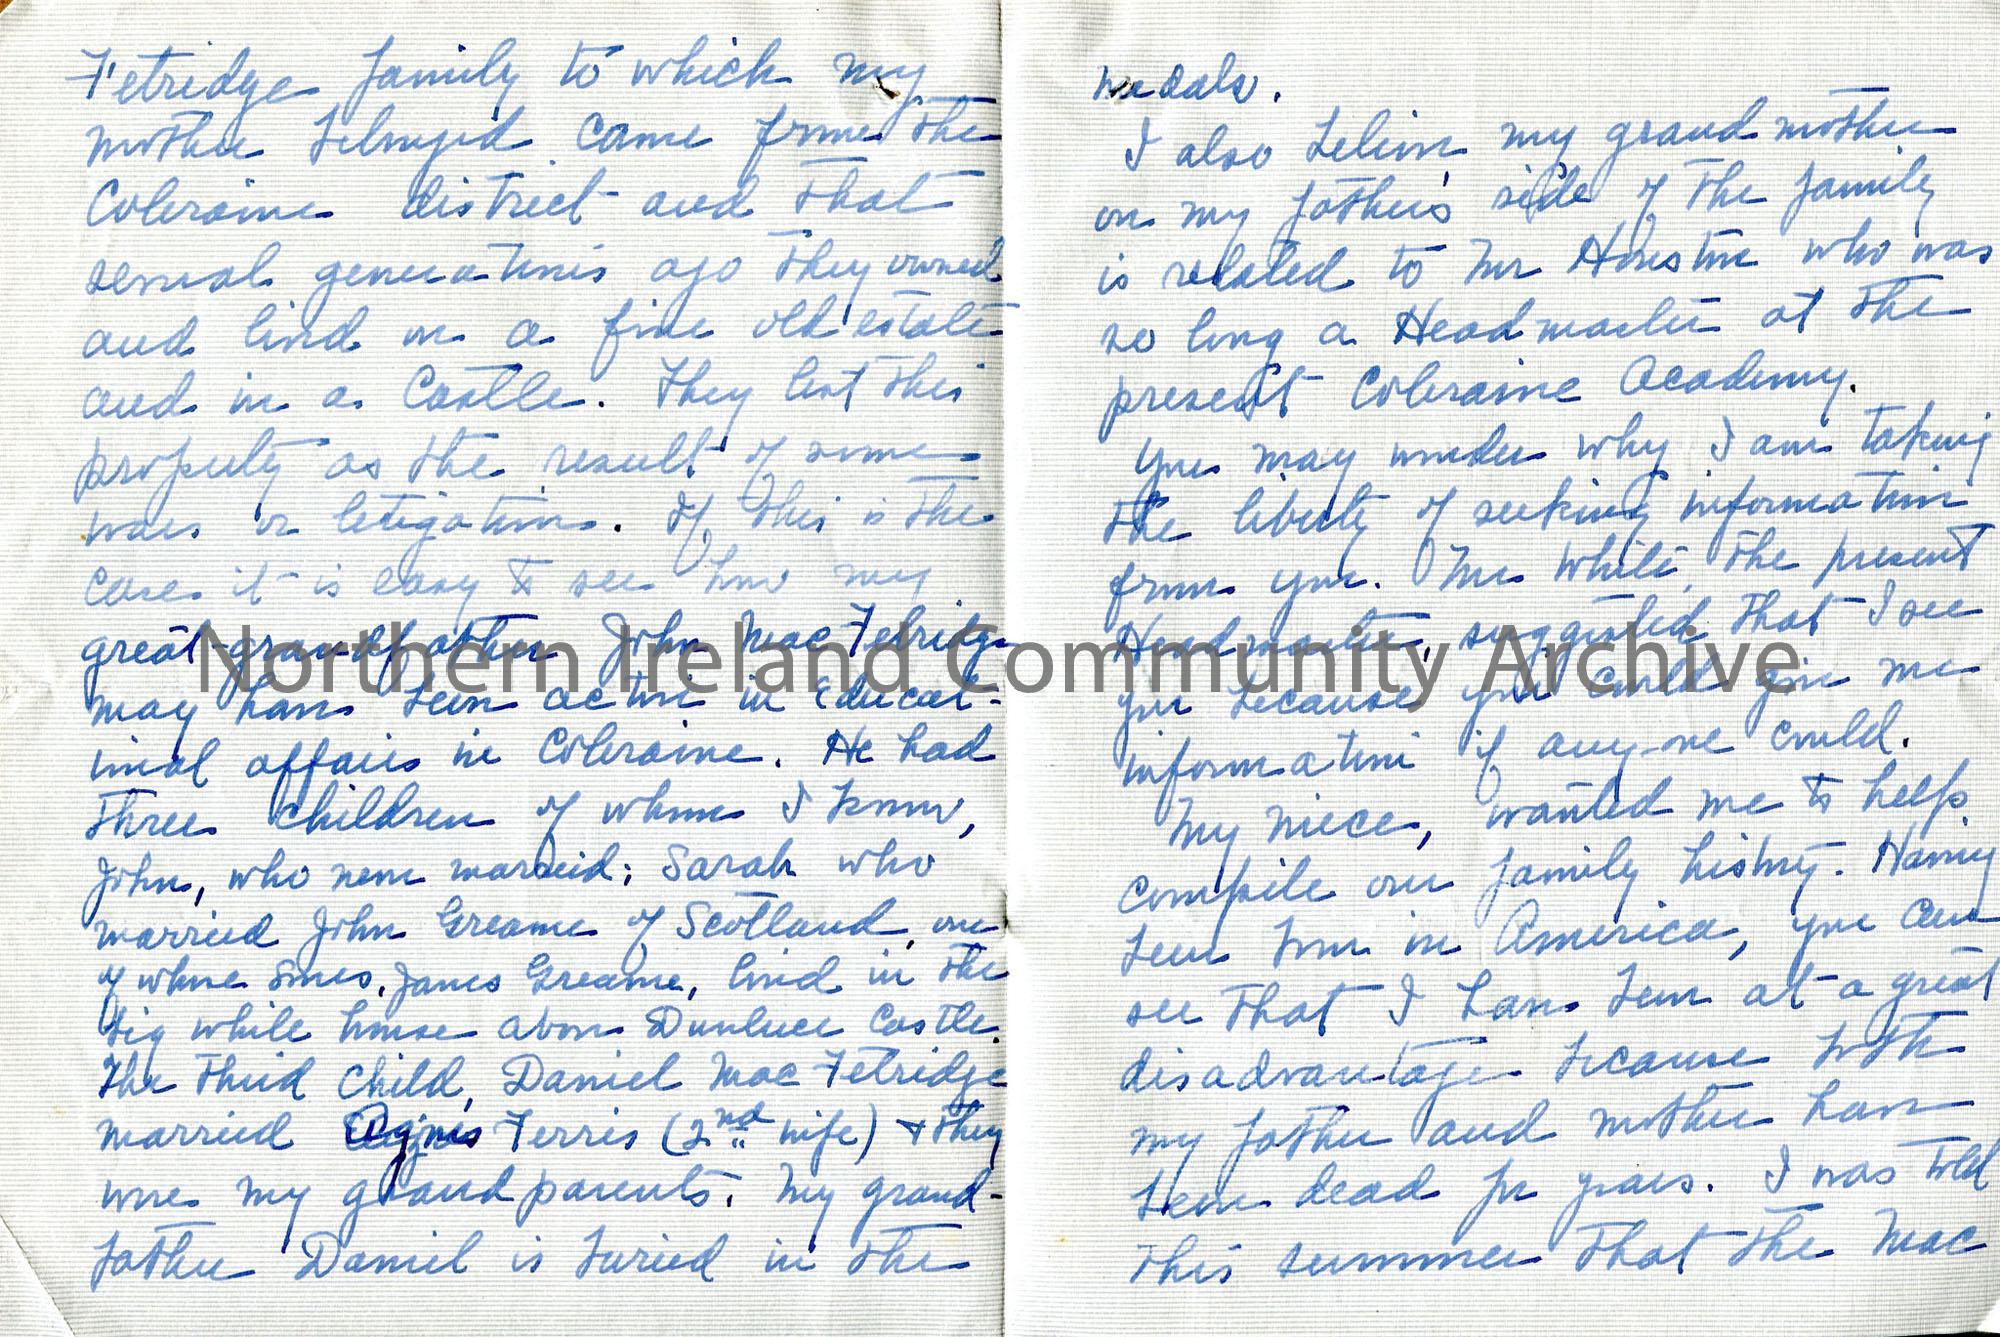 Fetridge family to which my
mother belonged came from the
Coleraine district and that
several generations ago they owned
and lived on a fine old estate
and in a Castle. They lost this
property as the result of some
wars or litigations. If this is the
case it is easy to see how my
great-grandfather John MacFetridge
may have been active in Educat-
ional affairs in Coleraine. He had
three children of whom I know,
John, who never married; Sarah who
married John Greame of Scotland, one
of whose sons, James Greame, lived in the
big white house above Dunluce Castle.
The third child, Daniel MacFetridge
married Agnes Ferris (2nd wife) + they
were my grandparents. My grand-
father Daniel is buried in the
medals.
I also believe my grandmother
on my father's side of the family
is related to Mr Houston who was
so long a Headmaster at the
present Coleraine Academy.
You may wonder why I am taking
the liberty of seeking information
from you. Mr White, the present
Headmaster, suggested that I see
you because you could give me
information if any-one could.
My niece, wanted me to help
compile our family history. Having
been born in America, you can
see that I have been at a great
disadvantage because both
my father and mother have
been dead for years. I was told
this summer that the Mac
Northern Ireland Community Archive